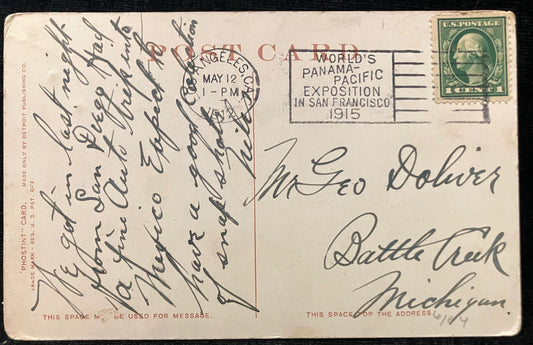 POST CARD
LOS ANGELES, CAL.
MAY 12
1-PM
WORLD'S
PANAMA-
PACIFIC
EXPOSITION
IN SAN FRANCISCO
1915
U.S. POSTAGE
1 CENT 1
"PHOSTINT" CARD.
MADE ONLY BY DETROIT PUBLISHING CO.
TRADE MARK - REG. U.S. PAT. OFF.
We got in last night
from San Diego Had
a fine Auto Trek into
Mexico Expect to
have a good Collection
of snap shots
Mr Geo Doliver
Battle Creek
Michigan.
THIS SPACE MAY BE USED FOR MESSAGE.
THIS SPACE FOR THE ADDRESS.